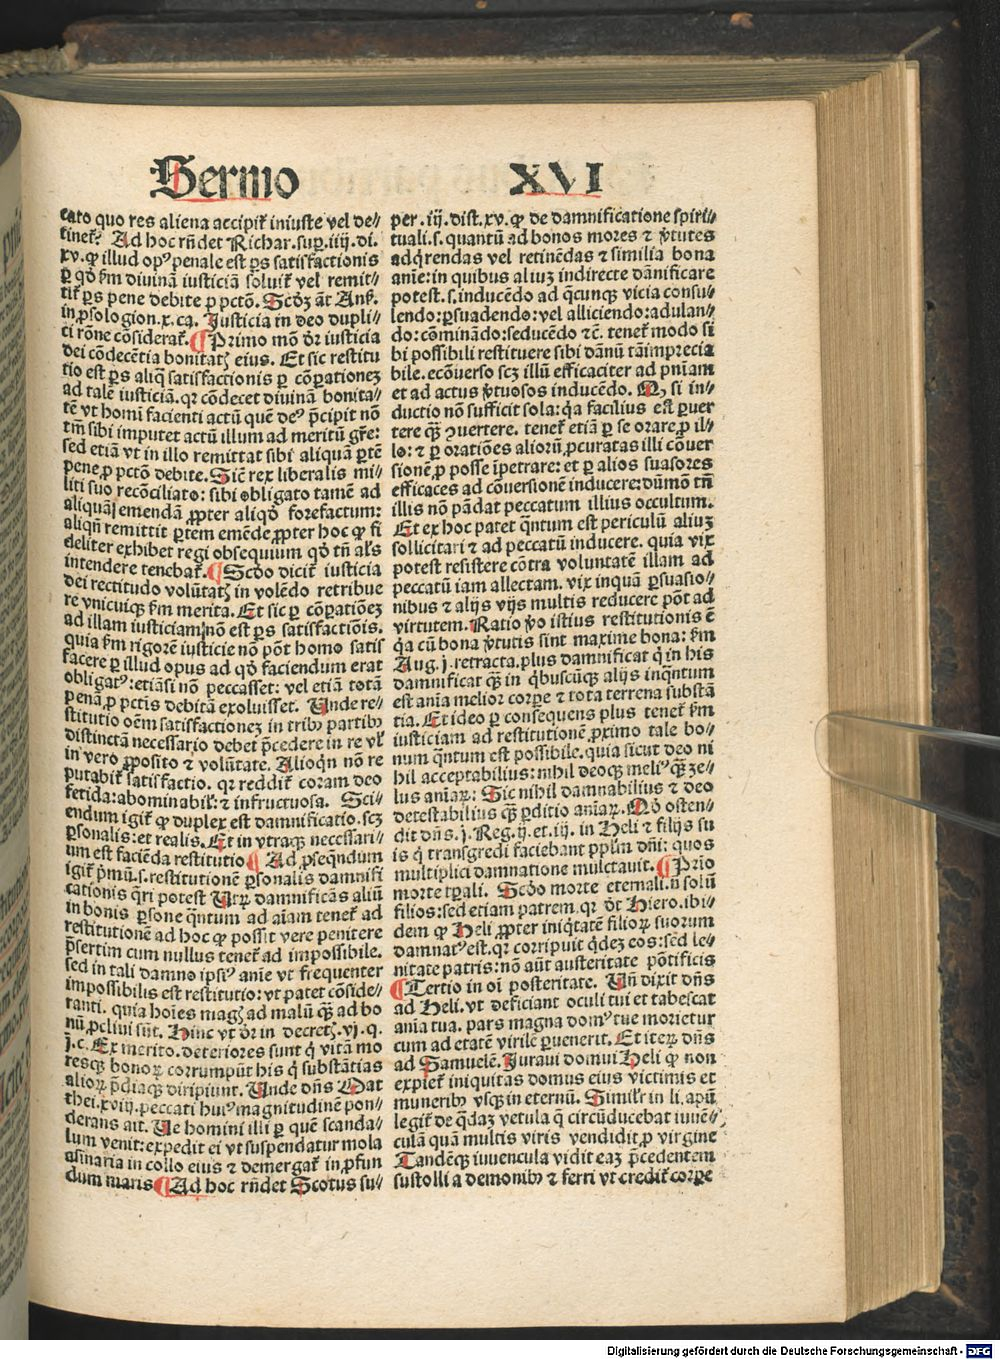 Sermo XVI
cato quo res aliena accipit᷑ iniuste vel de⸗
tinet᷑? Ad hoc rñdet Richar. sup. iiij. di.
xv. ꝙ illud opꝰ penale est ꝑs satisfactionis
ꝑ qd̓ ẜm diuinã iusticiã soluit᷑ vel remit⸗
tit᷑ ꝑs pene debite ꝓ pctõ. Scd̓ꝫ ãt Anß.
in ꝓsologion. x. ca. Justicia in deo dupli⸗
ci rõne cõsiderat᷑. ¶ Primo mõ dr̃ iusticia
dei cõdecẽtia bonitatꝭ eius. Et sic restitu
tio est ꝑs aliq̃ satisfactionis ꝑ cõꝑationeꝫ
ad talẽ iusticiã. qꝛ cõdecet diuinã bonita⸗
tẽ vt homĩ facienti actũ quẽ deꝰ p̃cipit nõ
tm̃ sibi imputet actũ illum ad meritũ gr̃e:
sed etiã vt in illo remittat sibi aliquã ꝑtẽ
pene ꝓ pctõ debite. Sic̃ rex liberalis mi⸗
liti suo recõciliato: sibi obligato tamẽ ad
aliquã emendã ꝓpter aliqd̓ forefactum:
aliqñ remittit ꝑtem emẽde ꝓpter hoc ꝙ fi
deliter exhibet regi obsequium qd̓ tñ al̓s
intendere tenebat᷑. ¶ Scd̓o dicit᷑ iusticia
dei rectitudo volũtatꝭ in volẽdo retribue
re vnicuiqꝫ ẜm merita. Et sic ꝑ cõꝑatiõeꝫ
ad illam iusticiam nõ est ꝑs satisfactiõis.
quia ẜm rigorẽ iusticie nõ põt homo satis
facere ꝑ illud opus ad qd̓ faciendum erat
obligatꝰ: etiãsi nõ peccasset: vel etiã totã
penã ꝓ pctis debitã exoluisset. Unde re⸗
stitutio oẽm satisfactioneꝫ in tribꝰ partibꝰ
distinctã necessario debet p̃cedere in re vl̓
in vero ꝓposito ⁊ volũtate. Alioqñ nõ re
putabit᷑ satisfactio. qꝛ reddit᷑ coram deo
fetida: abominabil̓: ⁊ infructuosa. Sci⸗
endum igit᷑ ꝙ duplex est damnificatio. scꝫ
ꝑsonalis: et realis. Et in vtraqꝫ necessari⸗
um est faciẽda restitutio ¶ Ad ꝓseqñdum
igit᷑ p̃mũ. s. restitutionẽ ꝑsonalis damnifi
cationis q̃ri potest Utrꝝ damnificãs aliũ
in bonis ꝑsone q̃ntum ad aiam tenet᷑ ad
restitutionẽ ad hoc ꝙ possit vere penitere
p̃sertim cum nullus tenet᷑ ad impossibile.
sed in tali damno ipsiꝰ anie vt frequenter
impossibilis est restitutio: vt patet cõside⸗
ranti. quia hoies magꝭ ad malũ qꝫ̃ ad bo
nũ ꝓcliui sũt. Hinc vt dr̃ in decretꝭ. vj. q.
j. c. Ex merito. deteriores sunt q̓ vitã mo
resqꝫ bonoꝝ corrumpũt his q̓ substãtias
alioꝝ p̃diaqꝫ diripiunt. Unde dñs Mat
thei. xviij. peccati huiꝰ magnitudinẽ pon⸗
derans ait. Ue homini illi ꝑ quẽ scanda⸗
lum venit: expedit ei vt suspendatur mola
asinaria in collo eius ⁊ demergat᷑ in ꝓfun
dum maris ¶ Ad hoc rñdet Scotus su⸗
per. iij. dist. xv. ꝙ de damnificatione spiri⸗
tuali. s. quantũ ad bonos mores ⁊ v̓tutes
adq̓rendas vel retinẽdas ⁊ similia bona
anĩe: in quibus aliuꝫ indirecte dãnificare
potest. s. inducẽdo ad q̃cunqꝫ vicia consu⸗
lendo: ꝑsuadendo: vel alliciendo: adulan⸗
do: cõminãdo: seducẽdo ⁊c̃. tenet᷑ modo si
bi possibili restituere sibi dãnũ tã imprecia
bile. ecõuerso scꝫ illũ efficaciter ad pniam
et ad actus v̓tuosos inducẽdo. Qꝫ si in⸗
ductio nõ sufficit sola: q̓a facilius est ꝑuer
tere qꝫ̃ ꝯuertere. tenet᷑ etiã ꝑ se orare ꝓ il⸗
lo: ⁊ ꝑ oratiões alioꝝ ꝓcuratas illi cõuer
sionẽ ꝓ posse ĩpetrare: et ꝑ alios suasores
efficaces ad cõuersionẽ inducere: dũmõ tñ
illis nõ pãdat peccatum illius occultum.
Et ex hoc patet q̃ntum est periculũ aliuꝫ
sollicitari ⁊ ad peccatũ inducere. quia vix
potest resistere cõtra voluntatẽ illam ad
peccatũ iam allectam. vix inquã ꝑsuasio⸗
nibus ⁊ alijs vijs multis reducere põt ad
virtutem. Ratio v̓o istius restitutionis ẽ
q̓a cũ bona v̓tutis sint maxime bona: ẜm
Aug. j. retracta. plus damnificat q̓ in his
damnificat qꝫ̃ in q̓buscũqꝫ alijs inq̃ntum
est anĩa melior corꝑe ⁊ tota terrena substã
tia. Et ideo ꝑ consequens plus tenet᷑ ẜm
iusticiam ad restitutionẽ ꝓximo tale bo⸗
num q̃ntum est possibile. quia sicut deo ni
hil acceptabilius: nihil deoqꝫ meliꝰ qꝫ̃ ze⸗
lus anĩaꝝ: Sic nihil damnabilius ⁊ deo
detestabilius qꝫ̃ ꝑditio anĩaꝝ. Qd̓ osten⸗
dit dñs. j. Reg. ij. et. iij. in Heli ⁊ filijs su
is q̓ transgredi faciebant ppl̓m dñi: quos
multiplici damnatione mulctauit. ¶ Prio
morte tꝑali. Scd̓o morte eternali. ñ solũ
filios: sed etiam patrem. qꝛ vt Hiero. ibi⸗
dem ꝙ Heli ꝓpter iniq̓tatẽ filioꝝ suorum
damnatꝰ est. qꝛ corripuit q̓deꝫ eos: sẽd le⸗
nitate patris: nõ aũt austeritate põtificis
¶ Tertio in oi posteritate. Uñ dixit dñs
ad Heli. vt deficiant oculi tui et tabescat
anĩa tua. pars magna domꝰ tue morietur
cum ad etatẽ virilẽ ꝑuenerit. Et iteꝝ dñs
ad Samuelẽ. Juraui domui Heli ꝙ non
expiet᷑ iniquitas domus eius victimis et
muneribꝰ vsqꝫ in eternũ. Simil̓r in li. apũ
legit᷑ de q̓daꝫ vetula q̃ circũducebat iuuẽ⸗
culã quã multis viris vendidit ꝓ virgine
Tandẽqꝫ iuuencula vidit eaꝫ p̃cedentem
sustolli a demonibꝰ ⁊ ferri vt credit᷑ corꝑe
Digitalisierung gefördert durch die Deutsche Forschungsgemeinschaft - DFG